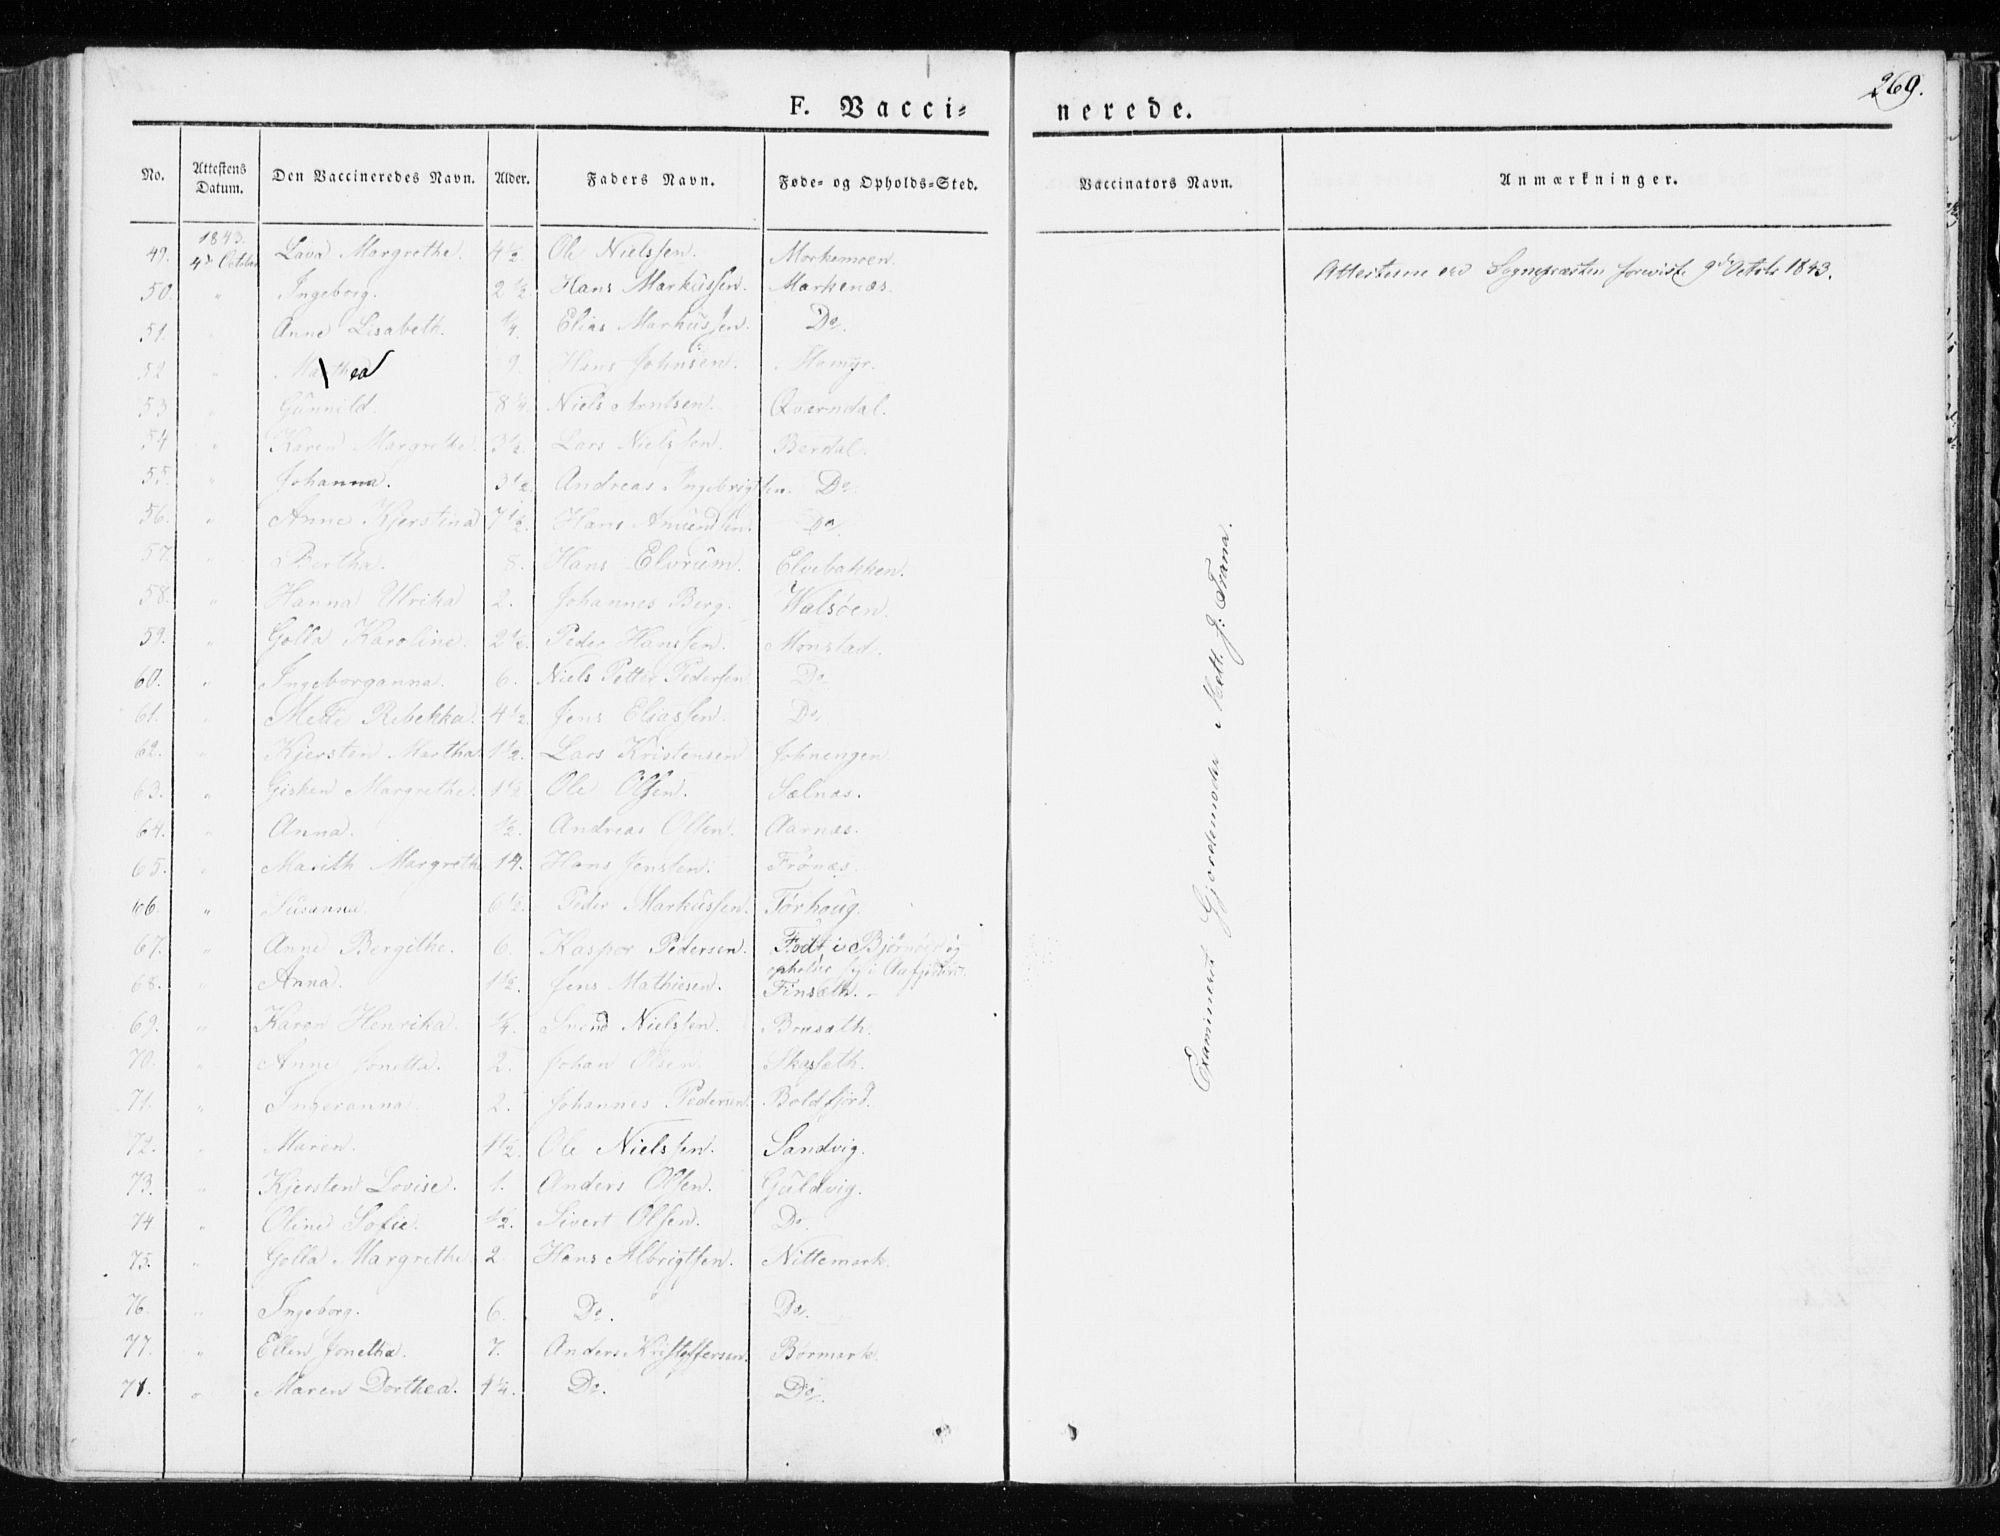 269.
F. Vaccinerede.
No. Attestens Datum. Den Vaccineredes Navn. Alder. Faders Navn. Føde- og Opholds-Sted. Vaccinators Navn. Anmærkninger.
1843.
49. 4de October Lava Margrethe. 4 1/2 Ole Nielssen. Morkemoen. Attesterne ved Sognepræsten foreviste 9de Octobr 1843.
50. " Ingeborg. 2 1/2 Hans Markussen. Markenæs.
51. " Anne Lisabeth. 1/4. Elias Markussen. Do.
52 " Mathea 9. Hans Johnsen. Homyr.
53 " Gunnild. 8 1/4. Niels Arntsen. Qværndal.
54. " Karen Margrethe. 3 1/2. Lars Nielssen. Berdal.
55. " Johanna. 3 1/2. Andreas Ingebrigtsen. Do.
56. " Anne Kjerstina 7 1/2. Hans Amundsen. Do.
57. " Bertha. 8. Hans Elvrum. Elvebakken.
58. " Hanna Ulrika 2. Johannes Berg. Walsøen.
59. " Golla Karoline. 2 1/2. Peder Hanssen. Monstad.
60. " Ingeborganna. 6. Niels Petter Pedersen Do
61. " Mette Rebekka. 4 1/2. Jens Eliassen. Do.
62. " Kjersten Martha 1 1/2. Lars Kristensen
63. " Gisken Margrethe. 1 1/2 Ole Olsen. Sælnæs.
64. " Anna. 1/2. Andreas Olsen. Aarnæs.
65. " Marith Margrethe 14. Hans Jensen. Frønæs.
66. " Susanna. 6 1/2. Peder Markussen. Tørhoug.
67. " Anne Bergithe. 6. Kasper Pedersen. Født i Bjørnør og
opholder sig i Aafjorden.
68. " Anna. 1 1/2. Jens Mathiesen. Finsæth.
69. " Karen Henrika. 1/4. Svend Nielssen. Bræsæth.
70. " Anne Jonetta. 2. Johan Olsen. Skasæth.
71. " Ingeranna. 2. Johannes Pedersen. Boldfjord.
72. " Maren. 1 1/2. Ole Nielssen. Sandvig.
73. " Kjersten Lovise. 1. Anders Olsen. Guldvig.
74 " Oline Sofie. 1/2. Sivert Olsen. Do.
75. " Golla Margrethe 2. Hans Albrigtsen. Nittemark.
76. " Ingeborg. 6. Do. Do.
77. " Ellen Jonetha. 7. Anders Kristoffersen. Børmark.
78. " Maren Dorthea. 1 1/4. Do. Do.
Examineret Gjordemoder Mett. J. Frana.